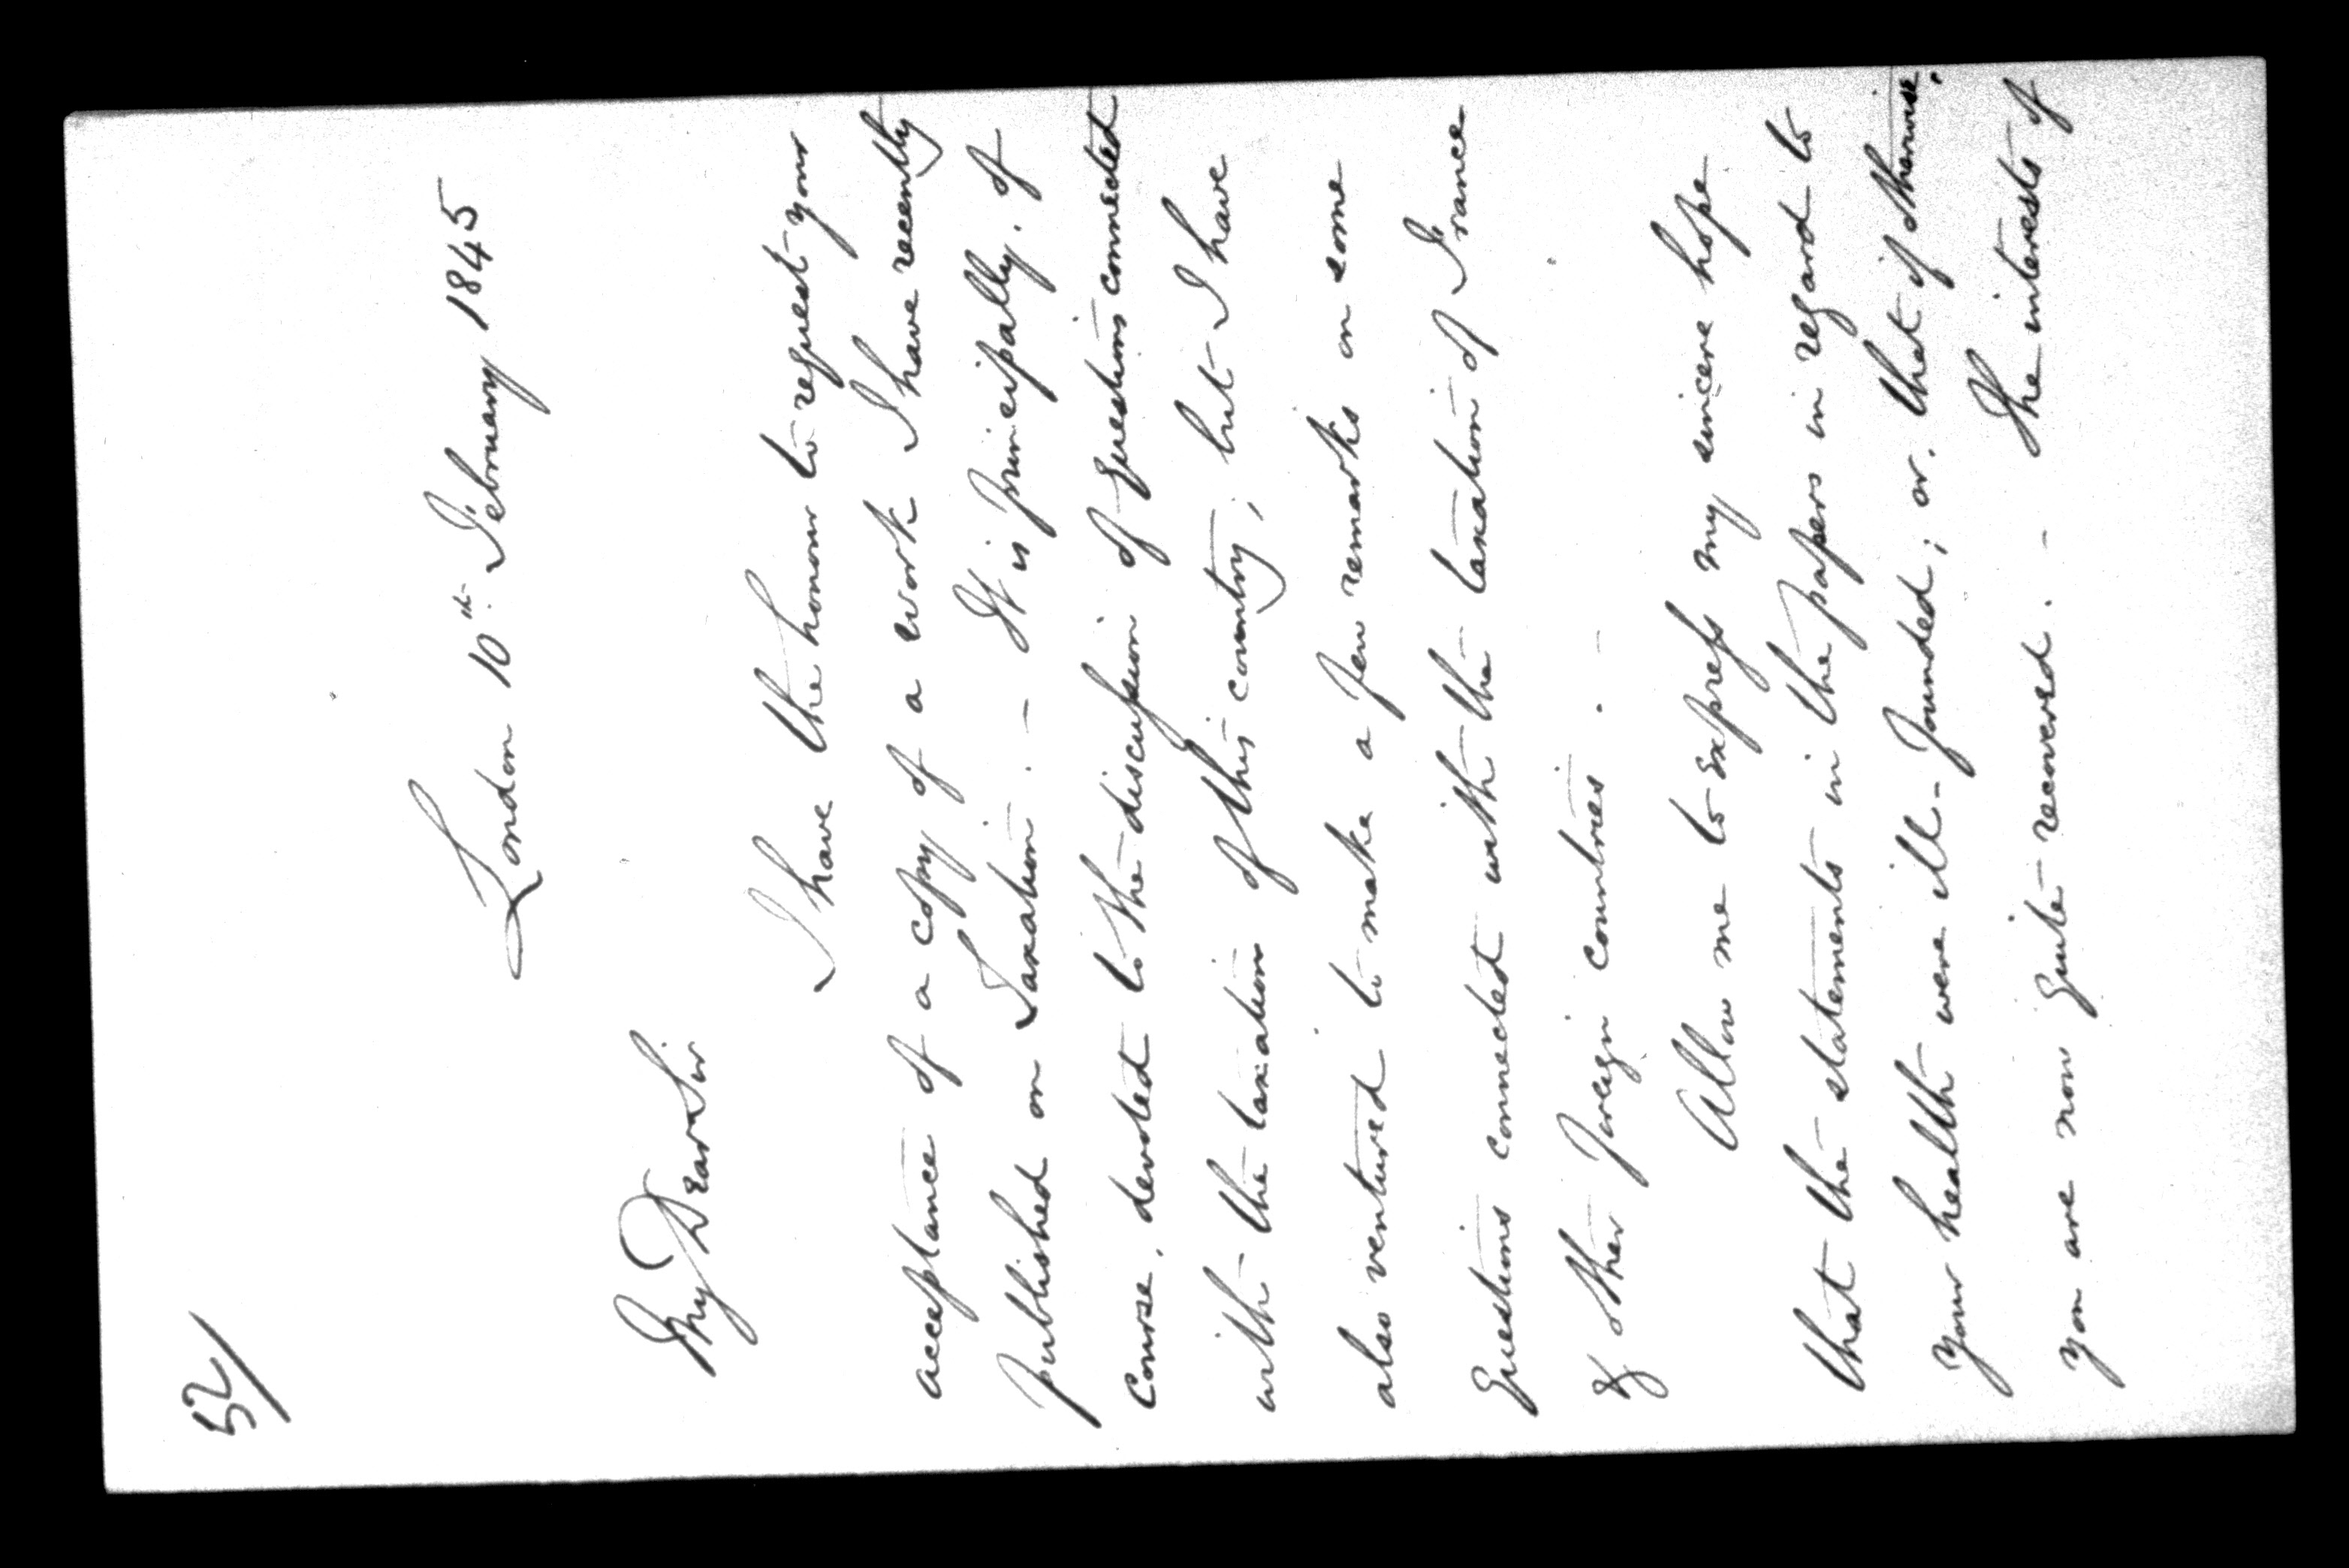 52/
London 10th. February 1845
My Dear Sir
I have the honour to request your
acceptance of a copy of a work I have recently
published on Taxation. – It is principally, of
course, devoted to the discussion of questions connected
with the taxation of this country; but I have
also ventured to make a few remarks on some
questions connected with the taxation of France
& other foreign countries. –
Allow me to express my sincere hope
that the statements in the papers in regard to
your health were ill-founded; or, that if otherwise,
you are now quite recovered. – The interests of